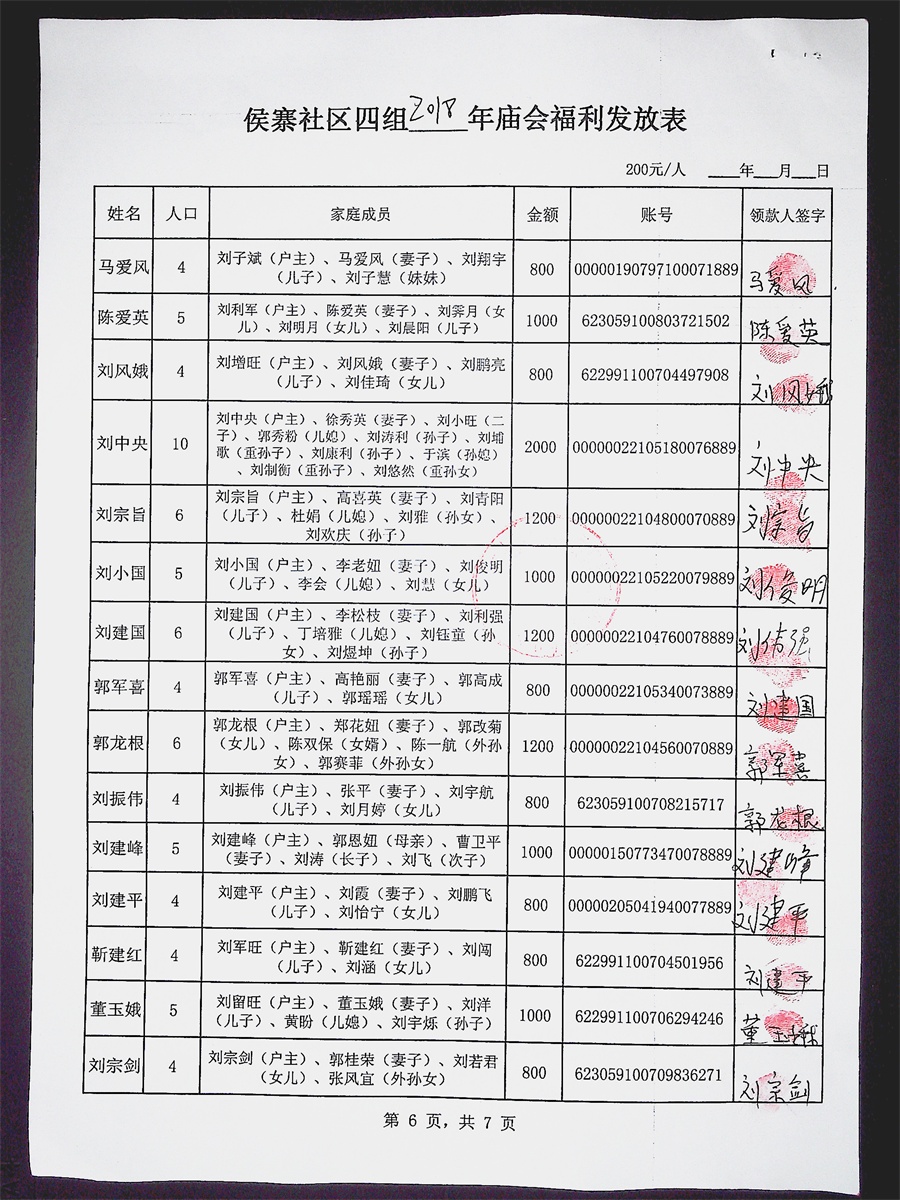 侯寨社区四组2018年庙会福利发放表
200元/人 ____年___月___日
姓名 人口 家庭成员 金额 账号 领款人签字
马爱风 4 刘子斌（户主）、马爱风（妻子）、刘翔宇 800 00000190797100071889 马爱风
（儿子）、刘子慧（妹妹）
陈爱英 5 刘利军（户主）、陈爱英（妻子）、刘霁月（女 1000 623059100803721502 陈爱英
儿）、刘明月（女儿）、刘晨阳（儿子）
刘风娥 4 刘增旺（户主）、刘风娥（妻子）、刘鹏亮 800 622991100704497908 刘风娥
（儿子）、刘佳琦（女儿）
刘中央 10 刘中央（户主）、徐秀英（妻子）、刘小旺（二 2000 00000022105180076889 刘中央
子）、郭秀粉（儿媳）、刘涛利（孙子）、刘埔
歌（重孙子）、刘康利（孙子）、于滨（孙媳）
、刘制衡（重孙子）、刘悠然（重孙女）
刘宗旨 6 刘宗旨（户主）、高喜英（妻子）、刘青阳 1200 00000022104800070889 刘宗旨
（儿子）、杜娟（儿媳）、刘雅（孙女）、
刘欢庆（孙子）
刘小国 5 刘小国（户主）、李老妞（妻子）、刘俊明 1000 00000022105220079889 刘俊明
（儿子）、李会（儿媳）、刘慧（女儿）
刘建国 6 刘建国（户主）、李松枝（妻子）、刘利强 1200 00000022104760078889
（儿子）、丁培雅（儿媳）、刘钰童（孙
女）、刘煜坤（孙子）
郭军喜 4 郭军喜（户主）、高艳丽（妻子）、郭高成 800 00000022105340073889 刘建国
（儿子）、郭瑶瑶（女儿）
郭龙根 6 郭龙根（户主）、郑花妞（妻子）、郭改菊 1200 00000022104560070889 郭军喜
（女儿）、陈双保（女婿）、陈一航（外孙
女）、郭赛菲（外孙女）
刘振伟 4 刘振伟（户主）、张平（妻子）、刘宇航 800 623059100708215717 郭龙根
（儿子）、刘月婷（女儿）
刘建峰 5 刘建峰（户主）、郭恩妞（母亲）、曹卫平 1000 00000150773470078889 刘建峰
（妻子）、刘涛（长子）、刘飞（次子）
刘建平 4 刘建平（户主）、刘霞（妻子）、刘鹏飞 800 00000205041940077889 刘建平
（儿子）、刘怡宁（女儿）
靳建红 4 刘军旺（户主）、靳建红（妻子）、刘闯 800 622991100704501956 刘建平
（儿子）、刘涵（女儿）
董玉娥 5 刘留旺（户主）、董玉娥（妻子）、刘洋 1000 622991100706294246 董玉娥
（儿子）、黄盼（儿媳）、刘宇烁（孙子）
刘宗剑 4 刘宗剑（户主）、郭桂荣（妻子）、刘若君 800 623059100709836271 刘宗剑
（女儿）、张风宜（外孙女）
第 6 页，共 7 页